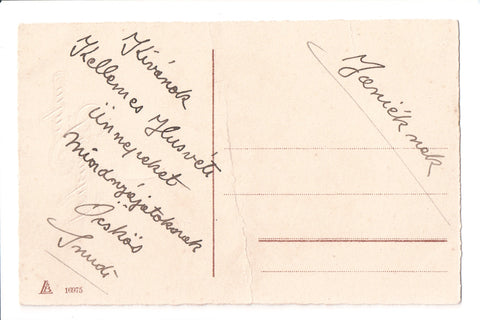 Kívánok
Kellemes Husvéti
ünnepeket
mindnyájatoknak
Öcskös
Smudi
Janiéknak
16975